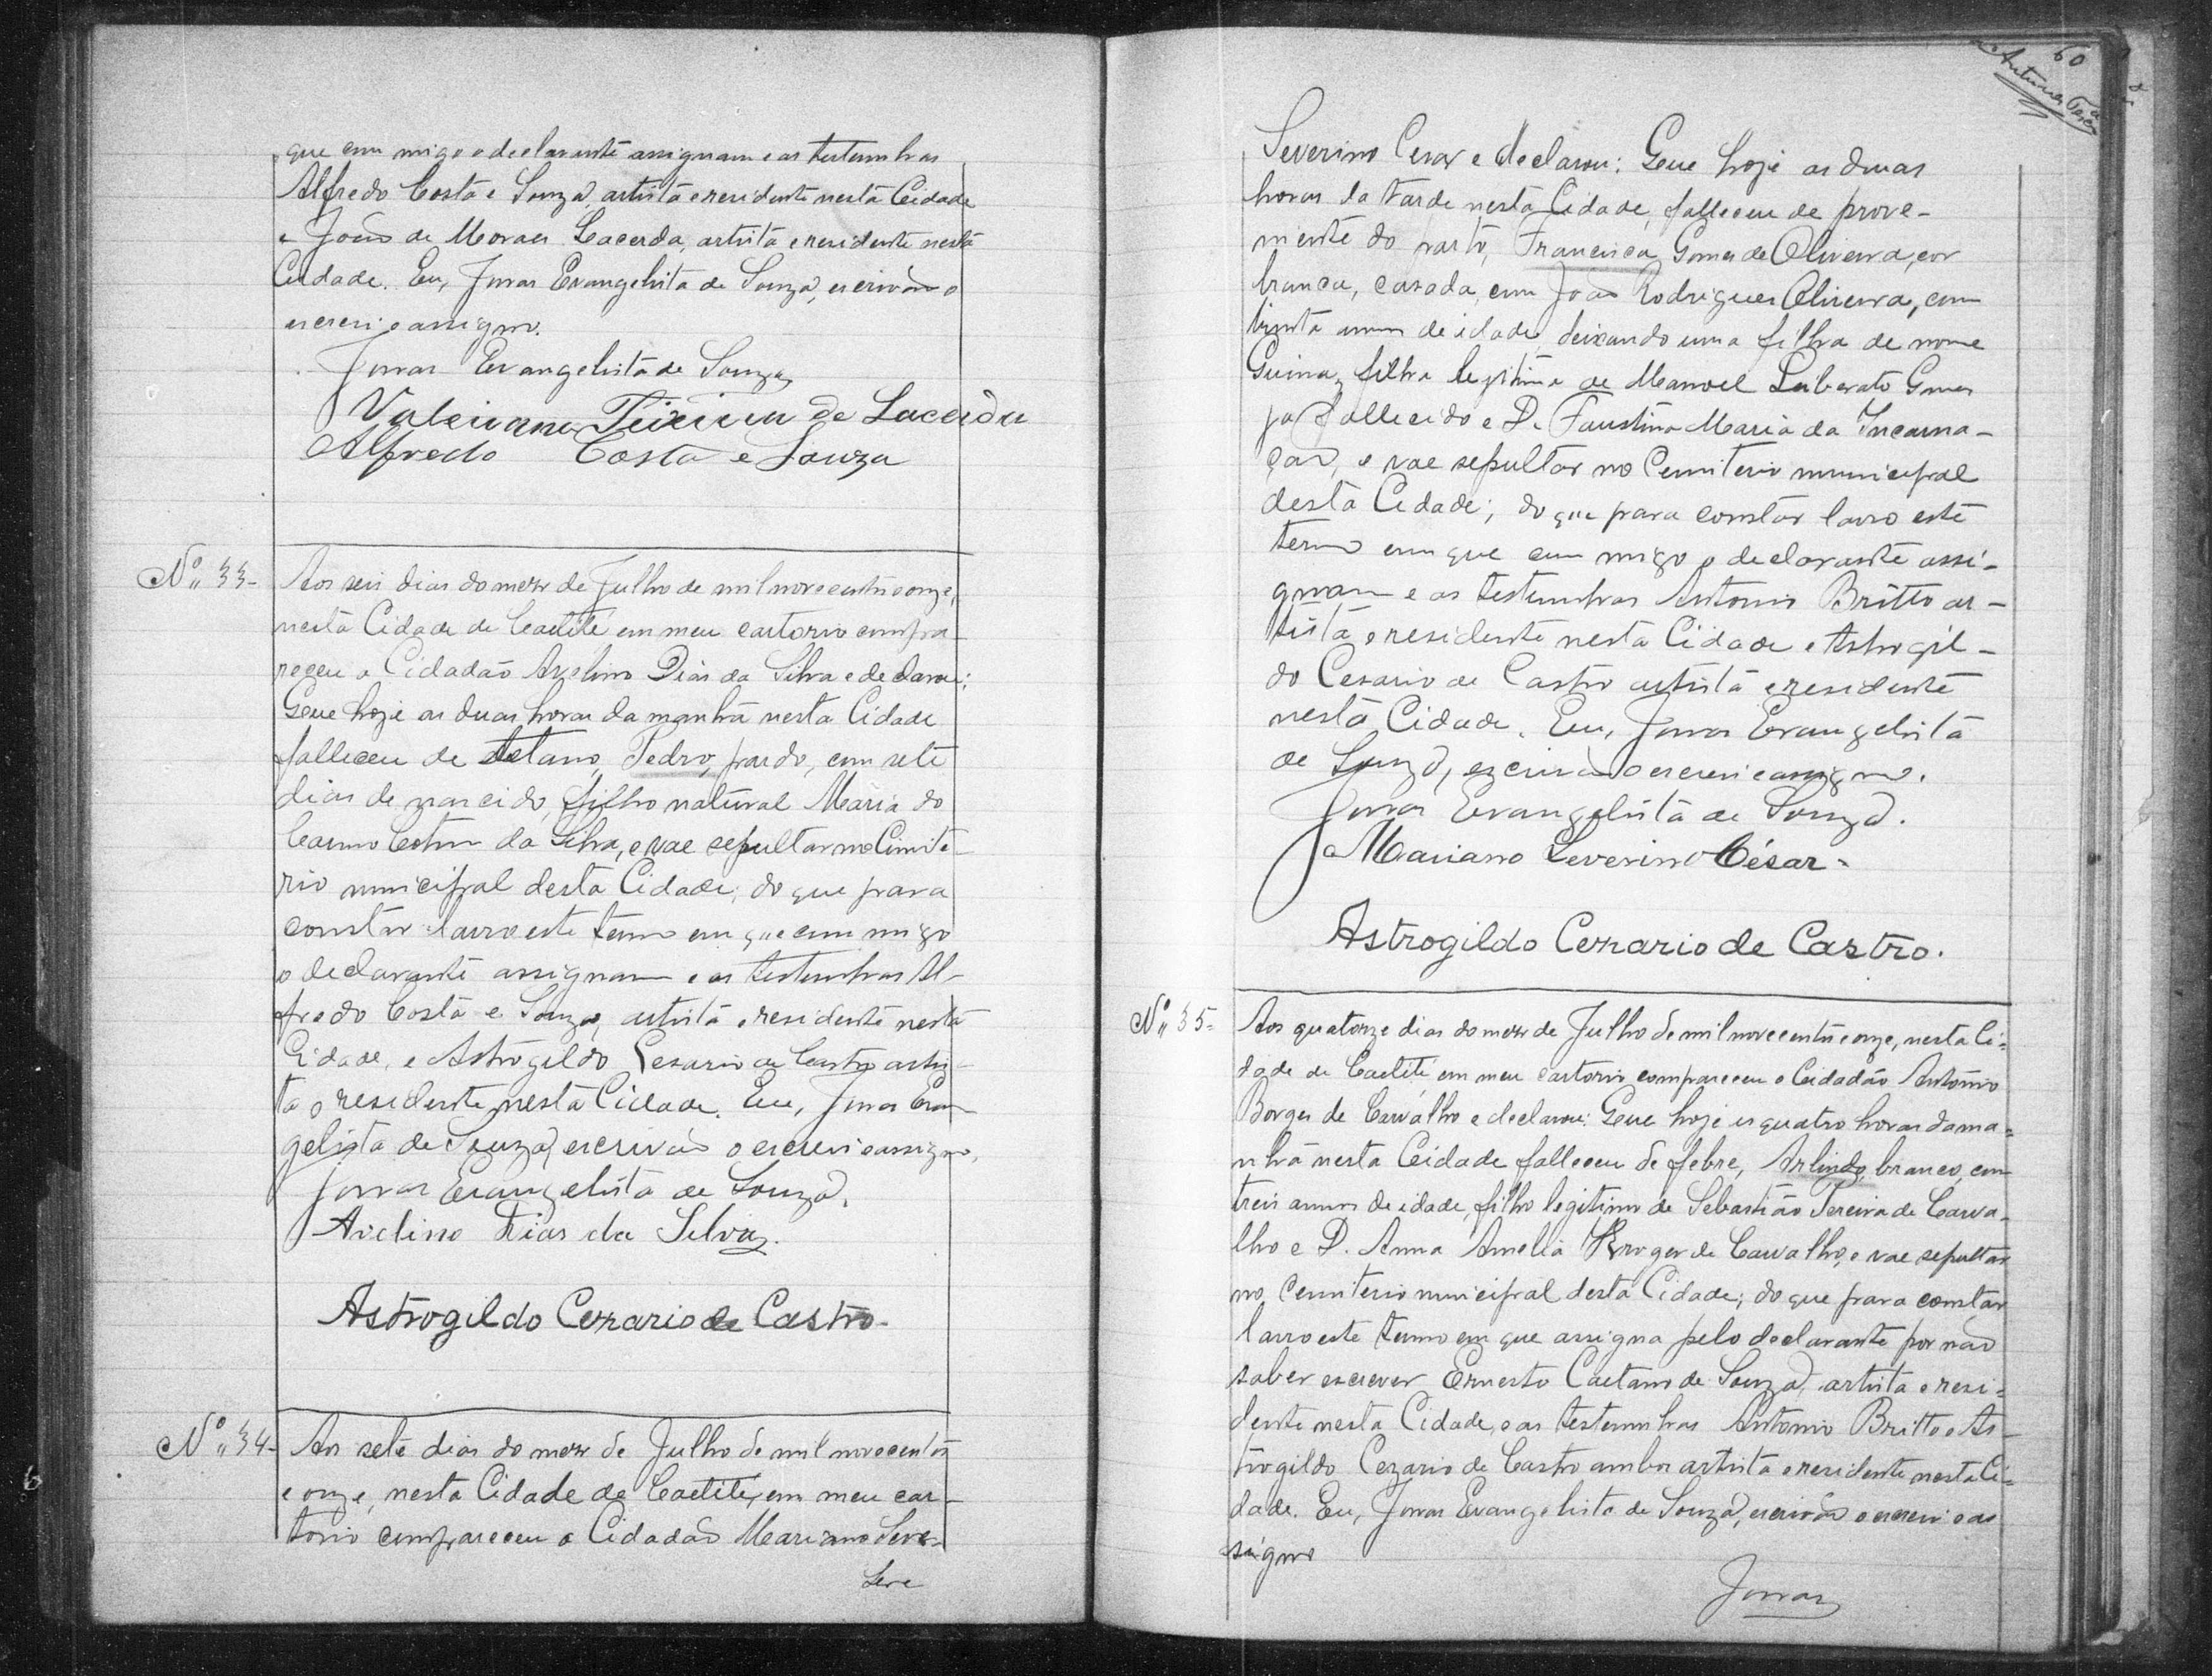 que cum migo o declarante assignam e as testemunhas
Alfredo Costa e Souza, artista e residente nesta Cidade
e João de Moraes Lacerda, artista e residente nesta
Cidade. Eu, Jonas Evangelista de Souza, escrivão o
escrevi e assigno.
Jonas Evangelista de Souza
Valeriano Teixeira de Lacerda
Alfredo Costa e Souza
Nº 33-
Aos seis dias do mez de Julho de mil novecentos e onze,
nesta Cidade de Caetité em meu cartorio compa-
receu o Cidadão Avelino Dias da Silva e declarou:
Que hoje as duas horas da manhã nesta Cidade
falleceu de tetano, Pedro, pardo, com sete
dias de nascido, filho natural Maria do
Carmo Cotrim da Silva, e vae sepultar no Cimite-
rio municipal desta Cidade; do que para
constar lavro este termo em que cum migo
o declarante assignam e as testemunhas Al-
fredo Costa e Souza, artista e residente nesta
Cidade, e Astrogildo Cesario de Castro artis-
ta e residente nesta Cidade. Eu, Jonas Evan-
gelista de Souza, escrivão o escrevi e assigno.
Jonas Evangelista de Souza.
Avelino Dias da Silva.
Astrogildo Cezario de Castro.
Nº 34-
Aos sete dias do mez de Julho de mil novecentos
e onze, nesta Cidade de Caetité, em meu car-
torio compareceu o Cidadão Mariano Seve-
Seve
60
Severino Cesar e declarou: Que hoje as duas
horas da tarde nesta Cidade, falleceu de prove-
niente do parto, Francisca Gomes de Oliveira, cor
branca, casada, com João Rodrigues Oliveira, com
trinta annos de idade, deixando uma filha de nome
filha legitima de Manoel Liberato Gomes
ja fallecido e D. Faustina Maria da Incarna-
ção, e vae sepultar no Cemiterio municipal
desta Cidade; do que para constar lavro este
termo em que cum migo o declarante assi-
gnam e as testemunhas Antonio Britto ar-
tista e residente nesta Cidade e Astrogil-
do Cesario de Castro artista e residente
nesta Cidade. Eu, Jonas Evangelista
de Souza, escrivão o escrevi e assigno.
Jonas Evangelista de Souza.
Mariano Severino César.
Astrogildo Cezario de Castro.
Nº 35-
Aos quatorze dias do mez de Julho de mil novecentos e onze, nesta Ci-
dade de Caetité em meu cartorio compareceu o Cidadão Antonio
Borges de Carvalho e declarou: Que hoje as quatro horas da ma-
nhã nesta Cidade falleceu de febre, Arlindo, branco, com
treis annos de idade, filho legitimo de Sebastião Pereira de Carva-
lho e D. Anna Amelia Borges de Carvalho, e vae sepultar
no Cemiterio municipal desta Cidade; do que para constar
lavro este termo em que assigna pelo declarante por não
saber escrever Ernesto Caetano de Souza, artista e resi-
dente nesta Cidade, e as testemunhas Antonio Britto e As-
trogildo Cezario de Castro ambos artista e residente nesta Ci-
dade. Eu, Jonas Evangelista de Souza, escrivão o escrevi e as
signo
Jonas